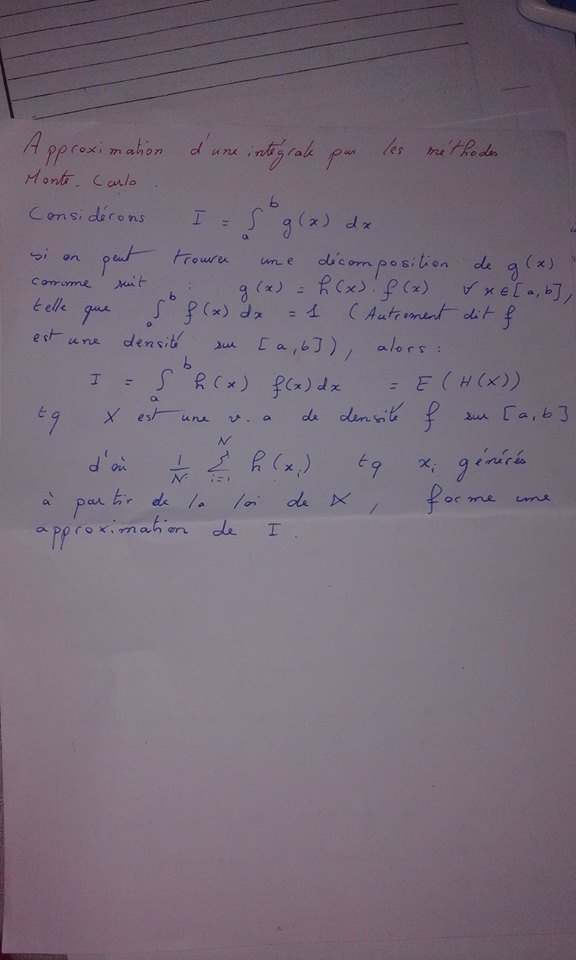 Approximation d'une intégrale par les méthodes
Monte-Carlo.
Considérons I = ∫_a^b g(x) dx
si on peut trouver une décomposition de g(x)
comme suit : g(x) = h(x). f(x) ∀ x ∈ [a,b],
telle que ∫_a^b f(x) dx = 1 (Autrement dit f
est une densité sur [a,b]), alors :
I = ∫_a^b h(x) f(x) dx = E(H(X))
tq X est une v.a de densité f sur [a,b]
d'où 1/N ∑_{i=1}^N h(x_i) tq x_i générés
à partir de la loi de X, forme une
approximation de I.